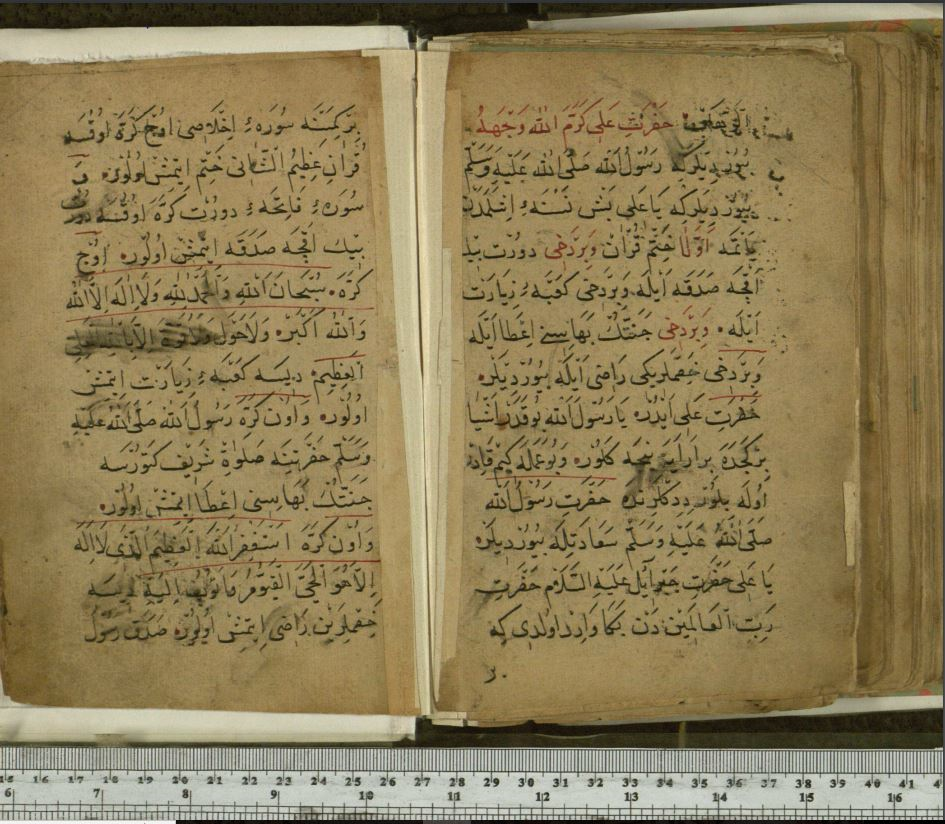 حَضْرَتِ عَلِی كَرَّمَ اللّٰه وَجْهَهُ
بُيُورْدِيلَركِه رَسُولُ اللّٰه صَلَّی اللّٰه عَلَيْهِ وَسَلَّمْ
بُيُورْدِيلَركِه يَا عَلِی بَشْ نَسْنَهءِ اِشْلَمَدَنْ
يَاتْمَه اَوَّلَا خَتْمِ قُرْآنْ وَبِرْدَخِی دورْت بيكْ
اَقْچَه صَدَقَه اَيْلَه وَبِرْدَخِی كَعْبَهءِ زِيَارَتْ
اَيْلَه وَبِرْدَخِی جَنَّتِكْ بَهَاسِنِی اِعْطَا اَيْلَه
وَبِرْدَخِی خَصْمْلَرِيكِی رَاضِی اَيْلَه بُيُورْدِيلَر
حَضْرَتِ عَلِی اَيْدُر يَا رَسُولَ اللّٰه بُوقَدَرْ اَشْيَا
بِرْكِجَه دَه بِرْ اَرَايَه نِيجَه كَلُور وَبُو عَمَلَه كِيمْ قَادِرْ
اُولَه بِلُورْ دِدِكْلَرِنْدَه حَضْرَتِ رَسُولُ اللّٰه
صَلَّی اللّٰهُ عَلَيْهِ وَسَلَّمْ سَعَادَتِلَه بُيُورْدِيلَر
يَا عَلِی حَضْرَتِ جَبْرَائِيل عَلَيْهِ السَّلَام حَضْرَتِ
رَبِّ الْعَالَمِينْ دَنْ بَكَا وَارِدْ اولْدِی كِه
بِرْ
بِرْ كِمْسَنَه سُورَهءِ اِخْلَاصِی اوُچْ كَرَّه اوُقُسَه
قُرْآنِ عَظِيمُ الشَّانِی خَتْمْ اِيتْمِشْ اوُلُور
سُورَهءِ فَاتِحَهءِ دورْتْ كَرَّه اوُقُسَه دورْت
بيكْ اَقْچَه صَدَقَه اِيتْمِشْ اوُلُور اوُچْ
كَرَّه سُبْحَانَ اللّٰهِ وَالْحَمْدُ لِلّٰهِ وَلَا اِلٰهَ اِلَّا اللّٰه
وَاللّٰه اَكْبَر وَلَاحَوْلَ وَلَا قُوَّةَ اِلَّا بِاللّٰهِ الْعَلِیِّ
الْعَظِيمْ دِيسَه كَعْبَهءِ زِيَارَتْ اِيتْمِشْ
اوُلُور وَاوُنْ كَرَّه رَسُولُ اللّٰه صَلَّی اللّٰهُ عَلَيْهِ
وَسَلَّمْ حَضْرَتِنَه صَلَوٰةِ شَرِيفْ كَتُورْسَه
جَنَّتِكْ بَهَاسِنِی اِعْطَا اِيتْمِشْ اوُلُور
وَاوُنْ كَرَّه اَسْتَغْفِرُ اللّٰهَ الْعَظِيمَ الَّذِی لَا اِلٰهَ
اِلَّا هُوَ الْحَیَّ الْقَيُّومَ وَاَتُوبُ اِلَيْهِ دِيسَه
خَصْمْلَرِينْ رَاضِی اِيتْمِشْ اوُلُور صَدَقَ رَسُولُ
15 16 17 18 19 20 21 22 23 24 25 26 27 28 29 30 31 32 33 34 35 36 37 38 39 40 41
6 7 8 9 10 11 12 13 14 15 16